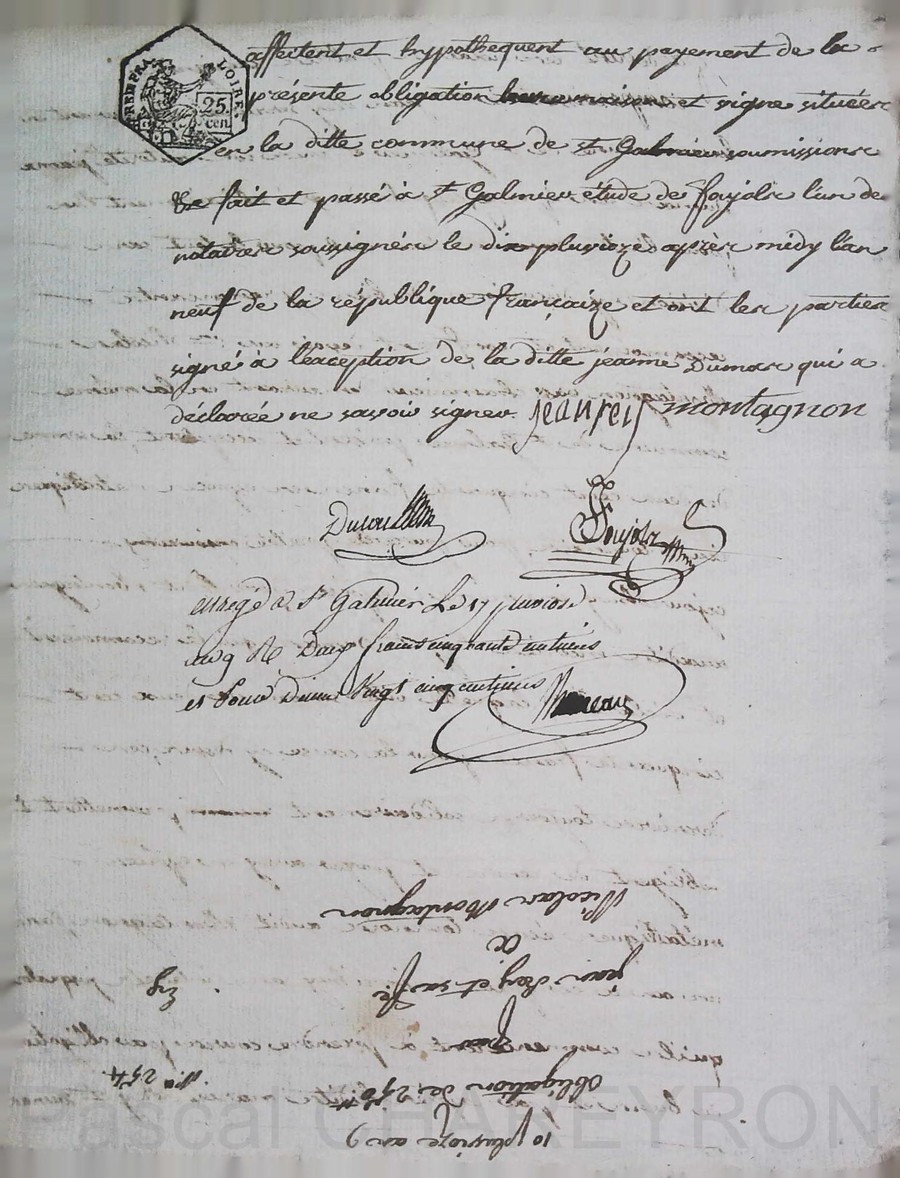 RÉP. FRA. LOIRE.
25
cen
affectent et hypothequent au payement de la
présente obligation leurs maison et vigne situées
en la ditte commune de st Galmier soumissions
&c fait et passé à st Galmier étude de foujols l'un des
notaires soussignés le dix pluvioze après midy l'an
neuf de la république françaize et ont les parties
signé à l'exception de la ditte jeanne Dumas qui a
déclarée ne savoir signer. jean rey montagnon
Foujols
enregé a St Galmier Le 17 pluviose
an 9 R Deux francs cinquante centimes
et pour Dixme vingt cinq centimes
10 pluvioze an 9
obligation de 250 tt
No 254
pour
jean Rey et sa fe
a
Nicolas Montagnon
Pascal CHAREYRON